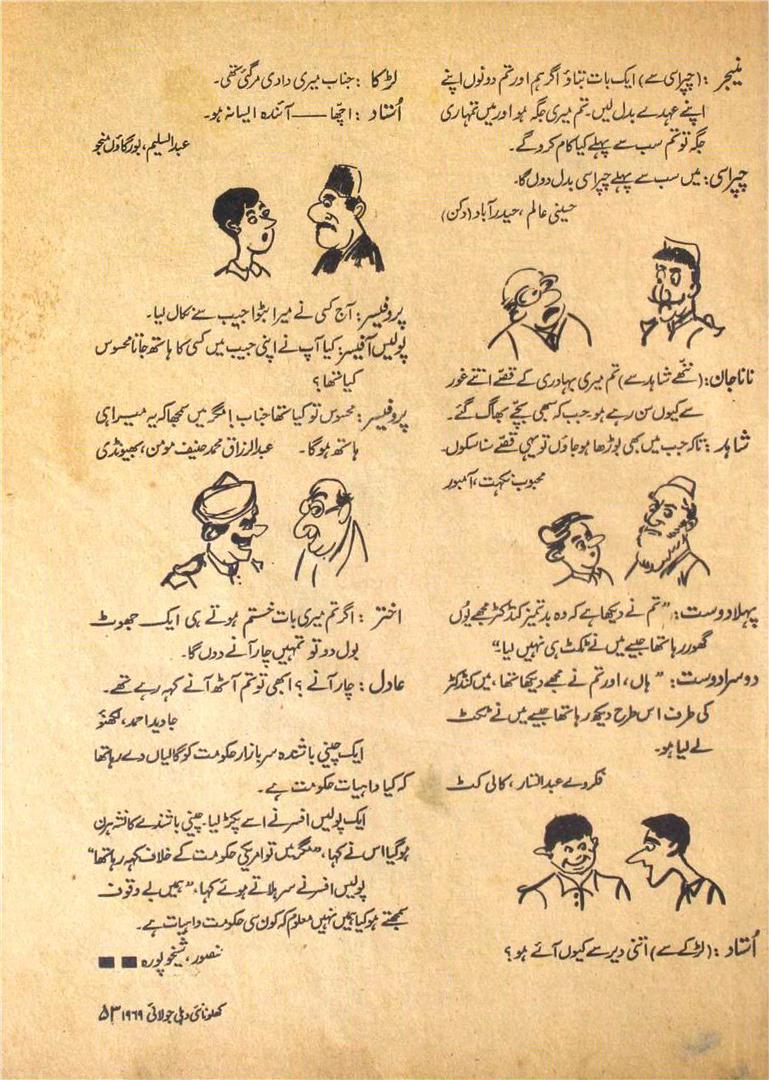 منیجر : (چپراسی سے) ایک بات بتاؤ اگر ہم اور تم دونوں اپنے
اپنے عہدے بدل لیں۔ تم میری جگہ ہو اور میں تمہاری
جگہ تو تم سب سے پہلے کیا کام کروگے۔
چپراسی : میں سب سے پہلے چپراسی بدل دوں گا۔
حسینی عالم، حیدرآباد (دکن)
نانا جان : (ننھے شاہد سے) تم میری بہادری کے قصے اتنے غور
سے کیوں سن رہے ہو جب کہ سبھی بچے بھاگ گئے۔
شاہد : تاکہ جب میں بھی بوڑھا ہو جاؤں تو یہی قصے سنا سکوں۔
محبوب نکہت، آمبور
پہلا دوست : "تم نے دیکھا ہے کہ وہ بدتمیز کنڈکٹر مجھے یُوں
گھور رہا تھا جیسے میں نے ٹکٹ ہی نہیں لیا۔"
دوسرا دوست : "ہاں، اور تم نے مجھے دیکھا تھا، میں کنڈکٹر
کی طرف اس طرح دیکھ رہا تھا جیسے میں نے ٹکٹ
لے لیا ہو۔
عبدالستار، کالی کٹ
اُستاد : (لڑکے سے) اتنی دیر سے کیوں آئے ہو؟
لڑکا : جناب میری دادی مرگئی تھی۔
اُستاد : اچھا —— آئندہ ایسا نہ ہو۔
عبدالسلیم، بورگاؤں منجو
پروفیسر : آج کسی نے میرا بٹوا جیب سے نکال لیا۔
پولیس آفیسر : کیا آپ نے اپنی جیب میں کسی کا ہاتھ جانا محسوس
کیا تھا؟
پروفیسر : محسوس تو کیا تھا جناب! مگر میں سمجھا کہ یہ میرا ہی
ہاتھ ہوگا۔ عبدالرزاق محمد حنیف مومن، بھیونڈی
اختر : اگر تم میری بات ختم ہوتے ہی ایک جھوٹ
بول دو تو تمہیں چار آنے دوں گا۔
عادل : چار آنے؟ ابھی تو تم آٹھ آنے کہہ رہے تھے۔
جاوید احمد، لکھنؤ
ایک چینی باشندہ سرِ بازار حکومت کو گالیاں دے رہا تھا
کہ کیا واہیات حکومت ہے۔
ایک پولیس افسر نے اسے پکڑ لیا۔ چینی باشندے کا نشہ ہرن
ہوگیا اس نے کہا، "مگر میں تو امریکی حکومت کے خلاف کہہ رہا تھا"
پولیس افسر نے سر ہلاتے ہوئے کہا، "ہمیں بے وقوف
سمجھتے ہو کیا ہمیں نہیں معلوم کہ کون سی حکومت واہیات ہے۔
شیخوپورہ
کھلونا نئی دہلی جولائی ۱۹۶۹ ۵۳